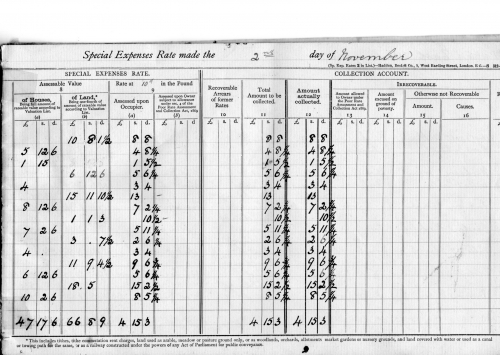 Special Expenses Rate made the 2nd day of November
SPECIAL EXPENSES RATE. COLLECTION ACCOUNT.
Assessable Value
8
Rate at 10d in the Pound
9
Recoverable Arrears of former Rates
10
Total Amount to be collected.
11
Amount actually collected.
12
IRRECOVERABLE.
Amount allowed to Owners under the Poor Rate Assessment and Collection Act.
13
Amount excused on ground of poverty.
14
Otherwise not Recoverable
Amount.
15
Causes
16
of Houses,
Being full amount of rateable value according to Valuation List.
(a)
of Land,*
Being one-fourth of amount of rateable value according to Valuation List.
Assessed upon Occupier.
(a)
(b)
£ s. d. £ s. d. £ s. d. £ s. d. £ s. d. £ s. d. £ s. d. £ s. d. £ s. d. £ s. d.
10 8 1½ 8 8 8 8 8 8
5 12 6 4 8¼ 4 8¼ 4 8¼
1 15 1 5½ 1 5½ 1 5½
6 12 6 5 6¼ 5 6¼ 5 6¼
4 3 4 3 4 3 4
15 11 10½ 13 - 13 13
8 12 6 7 2¼ 7 2¼ 7 2¼
1 1 3 10½ 10½ 10½
7 2 6 5 11¼ 5 11¼ 5 11¼
3 . 7½ 2 6¼ 2 6¼ 2 6¼
4 . 3 4 3 4 3 4
11 9 4½ 9 6¾ 9 6¾ 9 6¾
6 12 6 5 6¼ 5 6¼ 5 6¼
18 5 15 2½ 15 2½ 15 2½
10 2 6 8 5¼ 8 5¼ 8 5¼
47 17 6 66 8 9 4 15 3 4 15 3 4 15 3
*This includes tithes, tithe commutation rent charges, land used as arable, meadow or pasture ground only, or as woodlands, orchards, allotments market gardens or nursery grounds, and land covered with water or used as a canal
or towing path for the same, or as a railway constructed under the powers of any Act of Parliament for public conveyance.